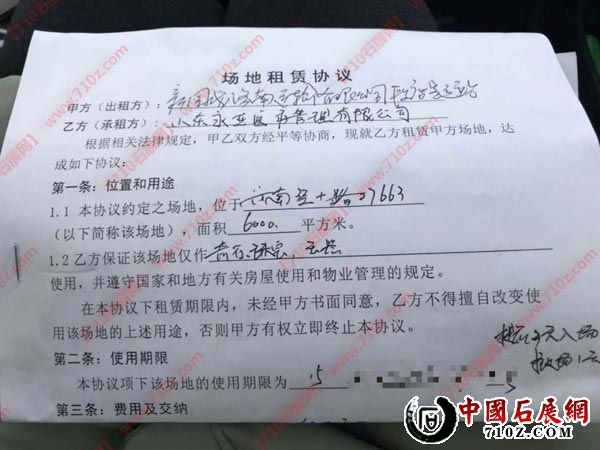 场地租赁协议
甲方（出租方）：济南
乙方（承租方）：山东永亚医药管理有限公司
根据相关法律规定，甲乙双方经平等协商，现就乙方租赁甲方场地，达
成如下协议：
第一条：位置和用途
1.1 本协议约定之场地，位于济南经十路27663
（以下简称该场地），面积 6000 平方米。
1.2 乙方保证该场地仅作
使用，并遵守国家和地方有关房屋使用和物业管理的规定。
在本协议下租赁期限内，未经甲方书面同意，乙方不得擅自改变使
用该场地的上述用途，否则甲方有权立即终止本协议。
第二条：使用期限
本协议项下该场地的使用期限为 15
第三条：费用及交纳
中國石展網
710Z.COM